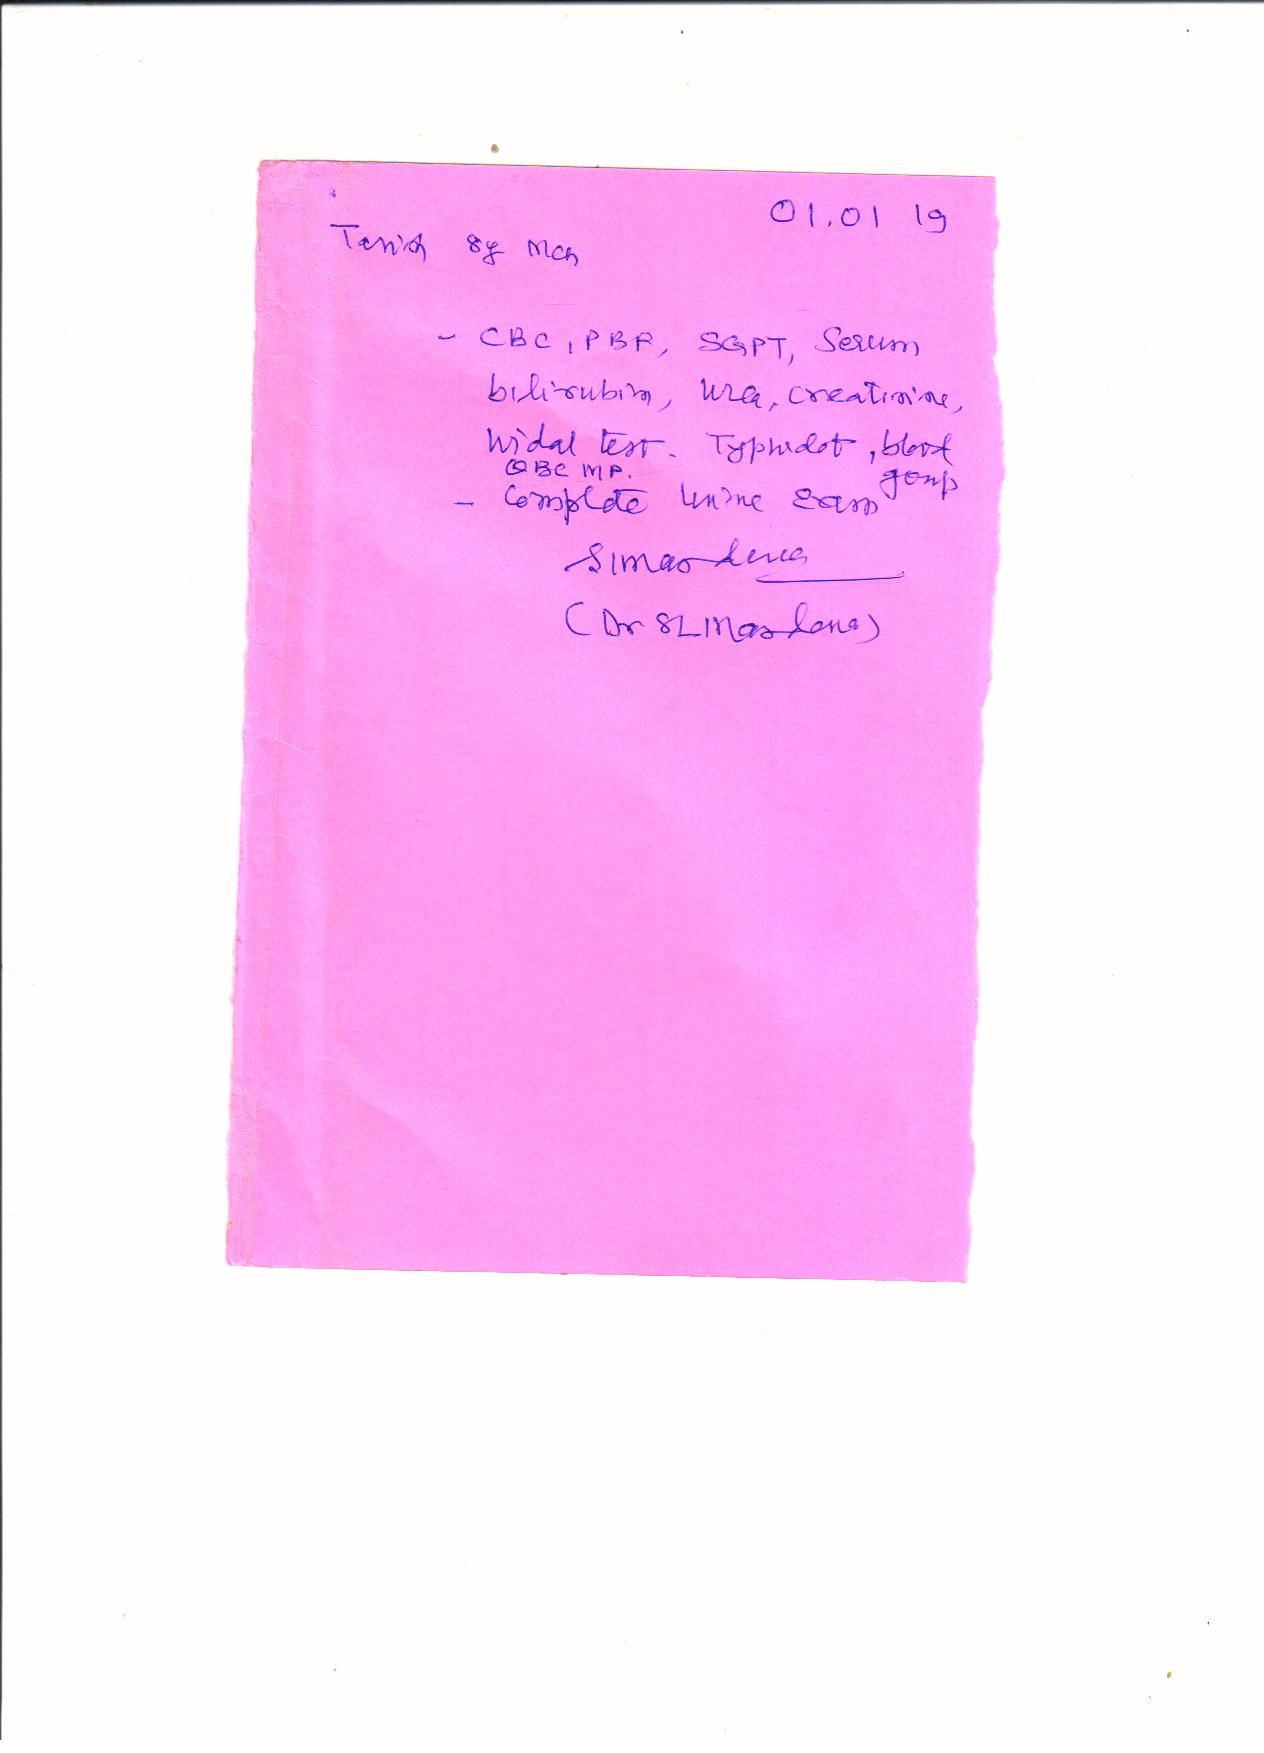 01.01 19
Tanish 8y Mch
- CBC, PBF, SGPT, Serum
bilirubin, Urea, creatinine,
Widal test. Typhidot, blood
group
QBC MP.
- Complete Urine Exam
(Dr SL Mandana)